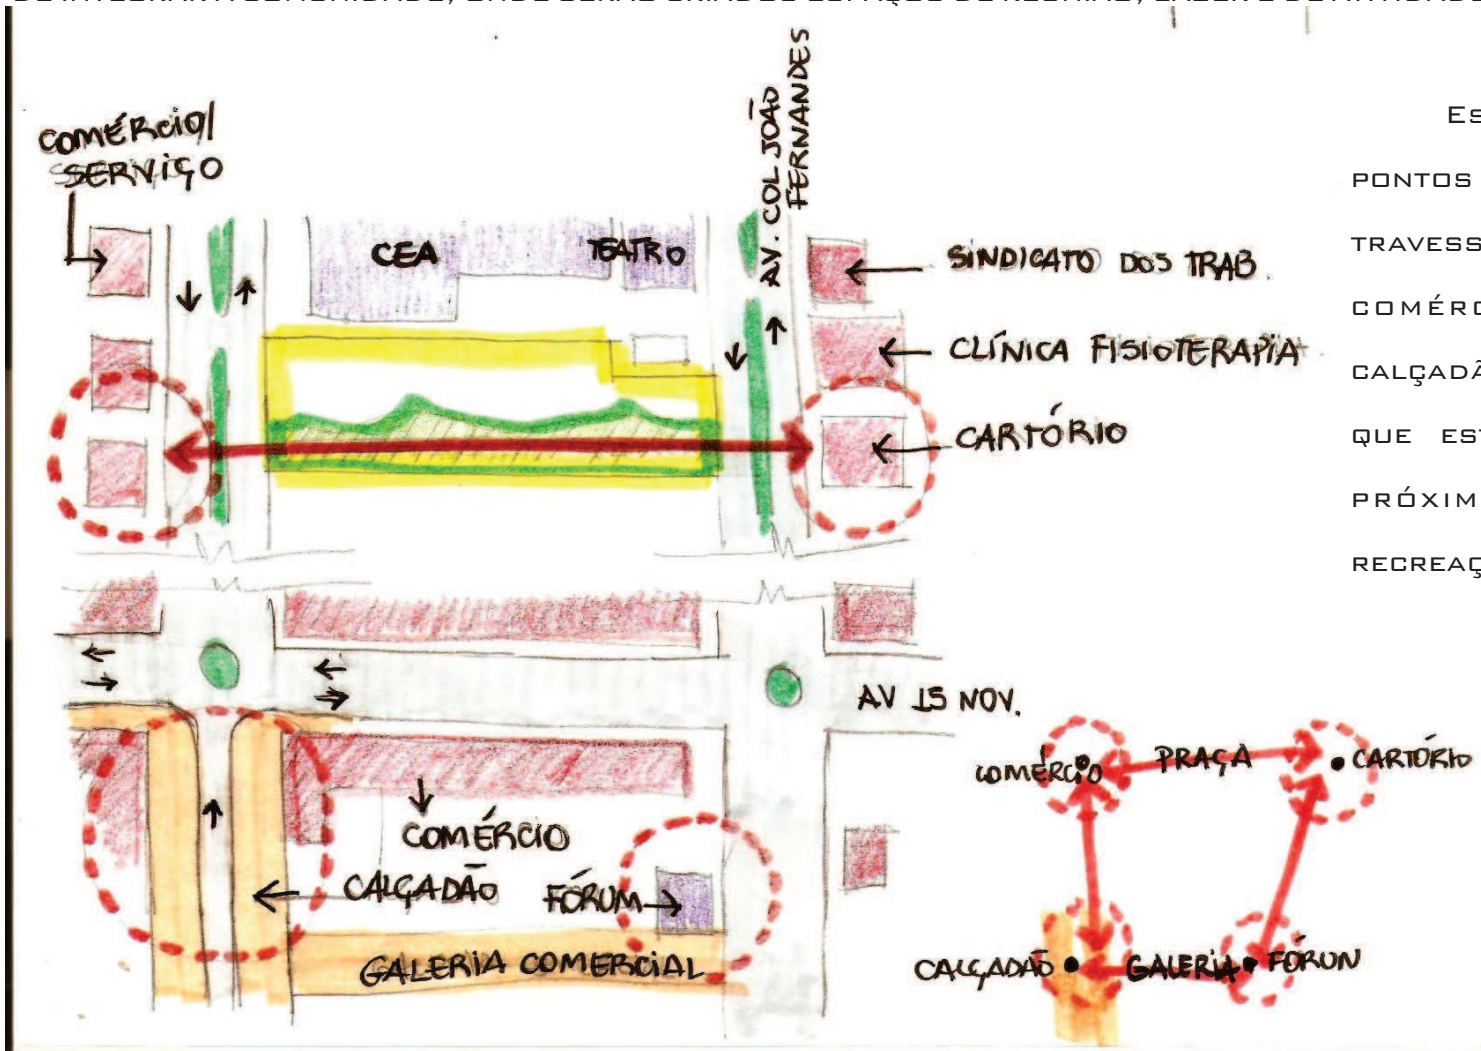 COMÉRCIO/
SERVIÇO
AV. COL JOÃO
FERNANDES
CEA
TEATRO
SINDICATO DOS TRAB.
CLÍNICA FISIOTERAPIA
CARTÓRIO
AV 15 NOV.
COMÉRCIO
CALÇADÃO
FÓRUM
GALERIA COMERCIAL
COMÉRCIO
PRAÇA
CARTÓRIO
CALÇADÃO
GALERIA
FÓRUN
ES
PONTOS
TRAVESS
COMÉRC
CALÇADÃ
QUE EST
PRÓXIM
RECREAÇ